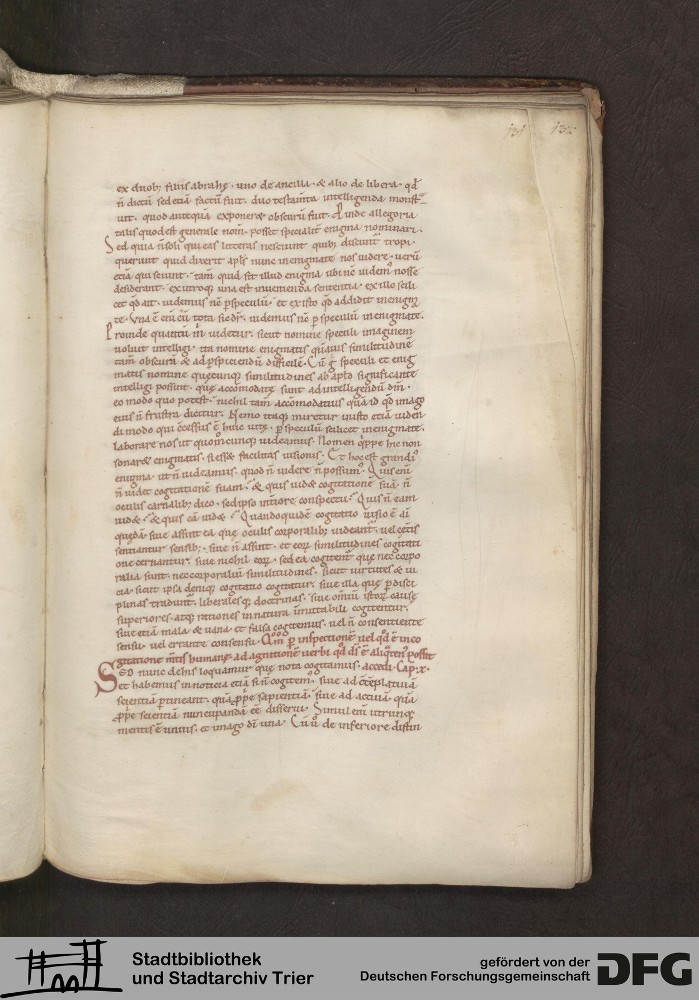 131 132
ex duob; filiis abrahę · uno de ancilla · & alio de libera · qd̄
n̄ dictū sed etiā factū fuit · duo testam̄ta intelligenda monst̄
uit · quod antequā exponeret obscurū fuit · Proinde allegoria
talis quod est generale nom̄ · posset specialit̄ enigma nominari ·
Sed quia n̄ soli qui eas litteras nesciunt quib; discunt̄ tropi ·
querunt quid dixerit apl̄s nunc in enigmate nos videre · verū
etiā qui sciunt · tam̄ quid sit illud enigma ubi nē videm' nosse
desiderant · ex utroq; una est invenienda sententia · ex illo scili
cet qd̄ ait · videmus nc̄ p speculū · et ex isto qd̄ addidit in enigm̄
te · Una ē eni cū tota sic dr̄ · videmus nc̄ p speculū in enigmate ·
Proinde quantū m̄ videtur · sicut nomine speculi imaginem
voluit intelligi · ita nomine enigmatis quāvis similitudinē
tam̄ obscurā & ad pspiciendū difficilē · Cū g speculi et enig
matis nomine quęcunq; similitudines ab apl̄o significatę
intelligi possint · quę accōmodatę sunt ad intelligendū dm̄ ·
eo modo quo potest · nichil tam̄ accōmodatius quā id qd̄ imago
eius n̄ frustra dicitur · Nemo itaq; miretur in isto etiā viden
di modo qui c̄cessus ē huic vitę · p speculū scilicet in enigmate ·
laborare nos ut quom̊cunq; videamus · Nomen q̄ppe hic non
sonaret enigmatis · si esset facilitas visionis · Et hoc est grandi'
enigma · ut n̄ videamus · quod n̄ videre n̄ possum' · Quis eni
n̄ videt cogitationē suam · & quis videt cogitationē suā · n̄
oculis carnalib; dico · sed ipso int̄iore conspectu · Quis n̄ eam
videt · & quis eā videt · Quandoquidē cogitatio visio ē ai
quędā sive assint ea que oculis corporalib; videant̄ · vel cet̄is
sentiantur sensib; · sive n̄ assint · et eoꝝ similitudines cogitati
one cernantur · sive nichil eoꝝ · sed ea cogitent̄ que nec corpo
ralia sunt · nec corporaliū similitudines · sicut virtutes & vi
cia · sicut ipsa deniq; cogitatio cogitatur · sive illa quę p disci
plinas tradunt̄ · liberalesq; doctrinas · sive omniū istoꝝ causę
superiores · atq; rationes in natura in̄mutabili cogitentur ·
sive etiā mala & vana · et falsa cogitemus · vel n̄ consentiente
sensu · vel errante consensu · Qm̄ p inspectionē vel qd̄ ē in co
gitatione m̄tis humanę · ad agnitionē verbi qd̄ d̄s ē aliq̄ten' possit
SED nunc de his loquamur que nota cogitamus · accedi · Cap · x ·
et habemus in noticia etiā si n̄ cogitem' · sive ad c̄tēplativā
scientiā ptineant · quā p̄prie sapientiā · sive ad activā · quā
p̄prie scientiā nuncupandā eē disserui · Simul eni utrunq;
mentis ē unius · et imago di una · Cū v̊ de inferiore distin
Stadtbibliothek
und Stadtarchiv Trier
gefördert von der
Deutschen Forschungsgemeinschaft
DFG